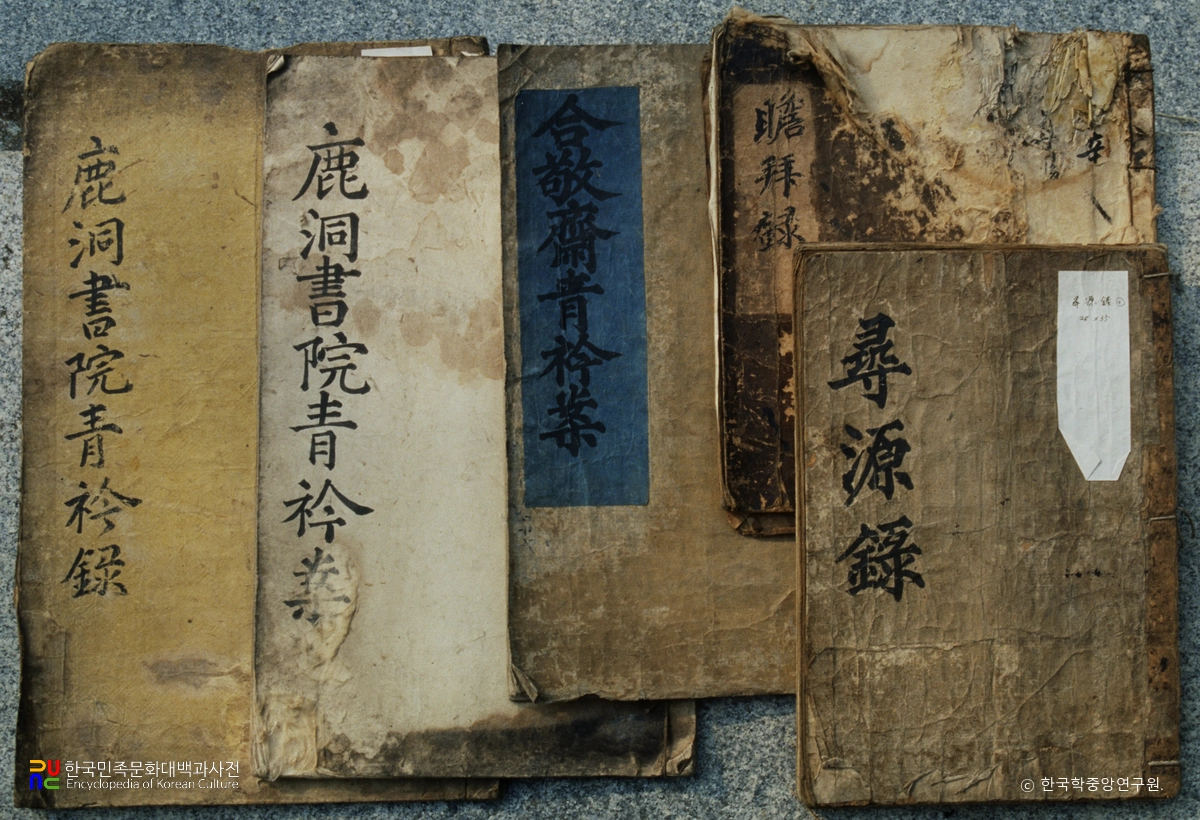 鹿洞書院青衿録
鹿洞書院青衿案
合敬齋青衿案
瞻拜録
辛
尋源錄
한국민족문화대백과사전
Encyclopedia of Korean Culture
ⓒ 한국학중앙연구원.